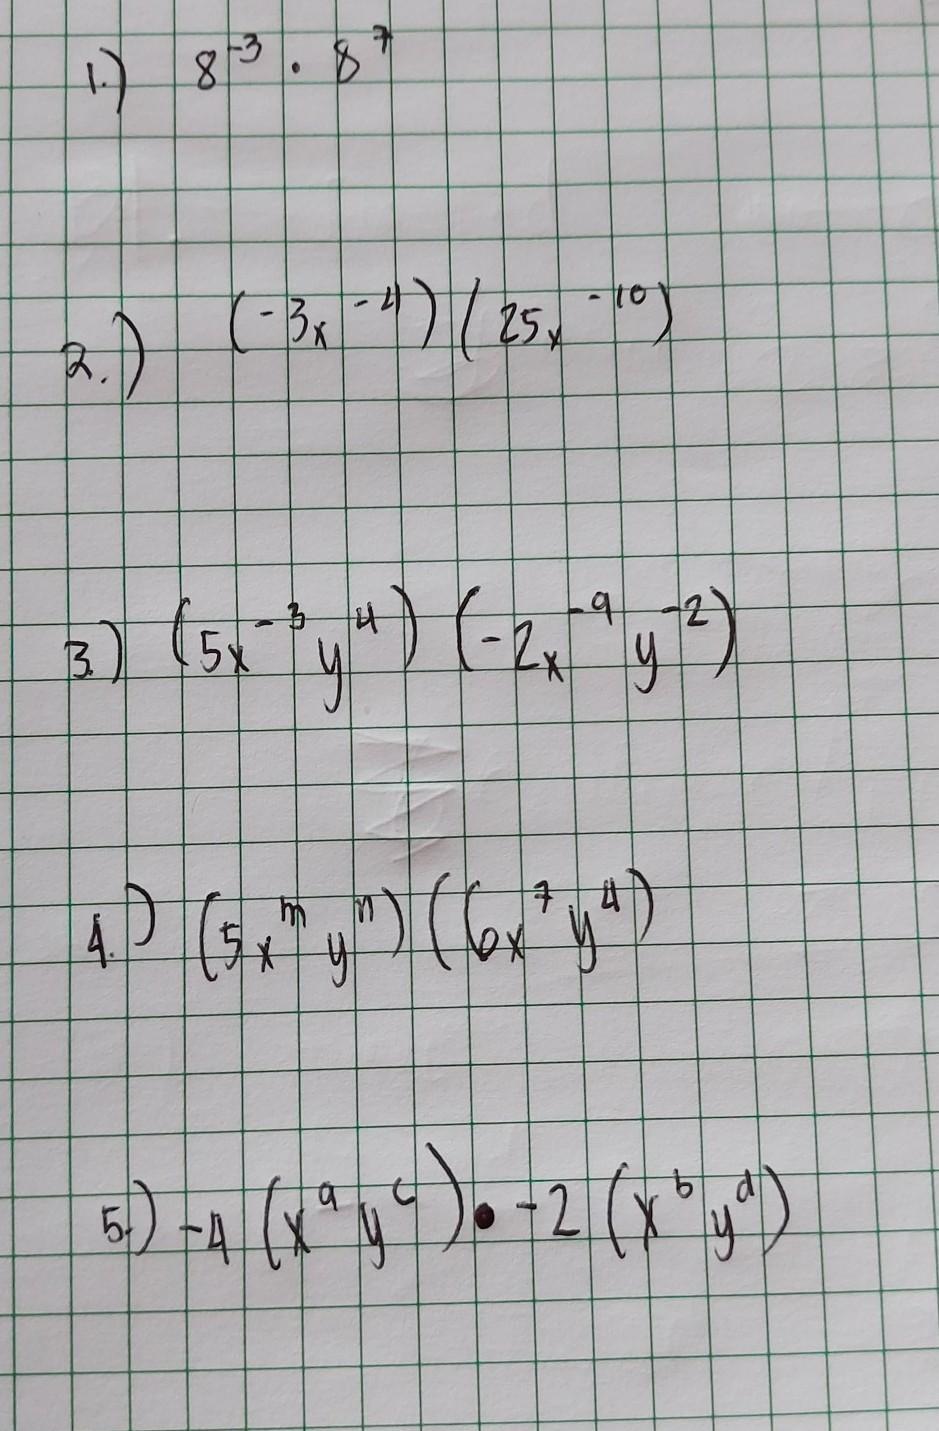 1.) 8⁻³ · 8⁷
2.) (-3x⁻⁴)(25x⁻¹⁰)
3.) (5x⁻³y⁴)(-2x⁻⁹y⁻²)
4.) (5xᵐyⁿ)(6x⁷y⁴)
5.) -4(xᵃyᶜ)•-2(xᵇyᵈ)